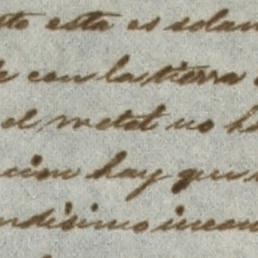 to esta es solam
e con la tierra
el metal no h
cion hay que
ndisimo incon